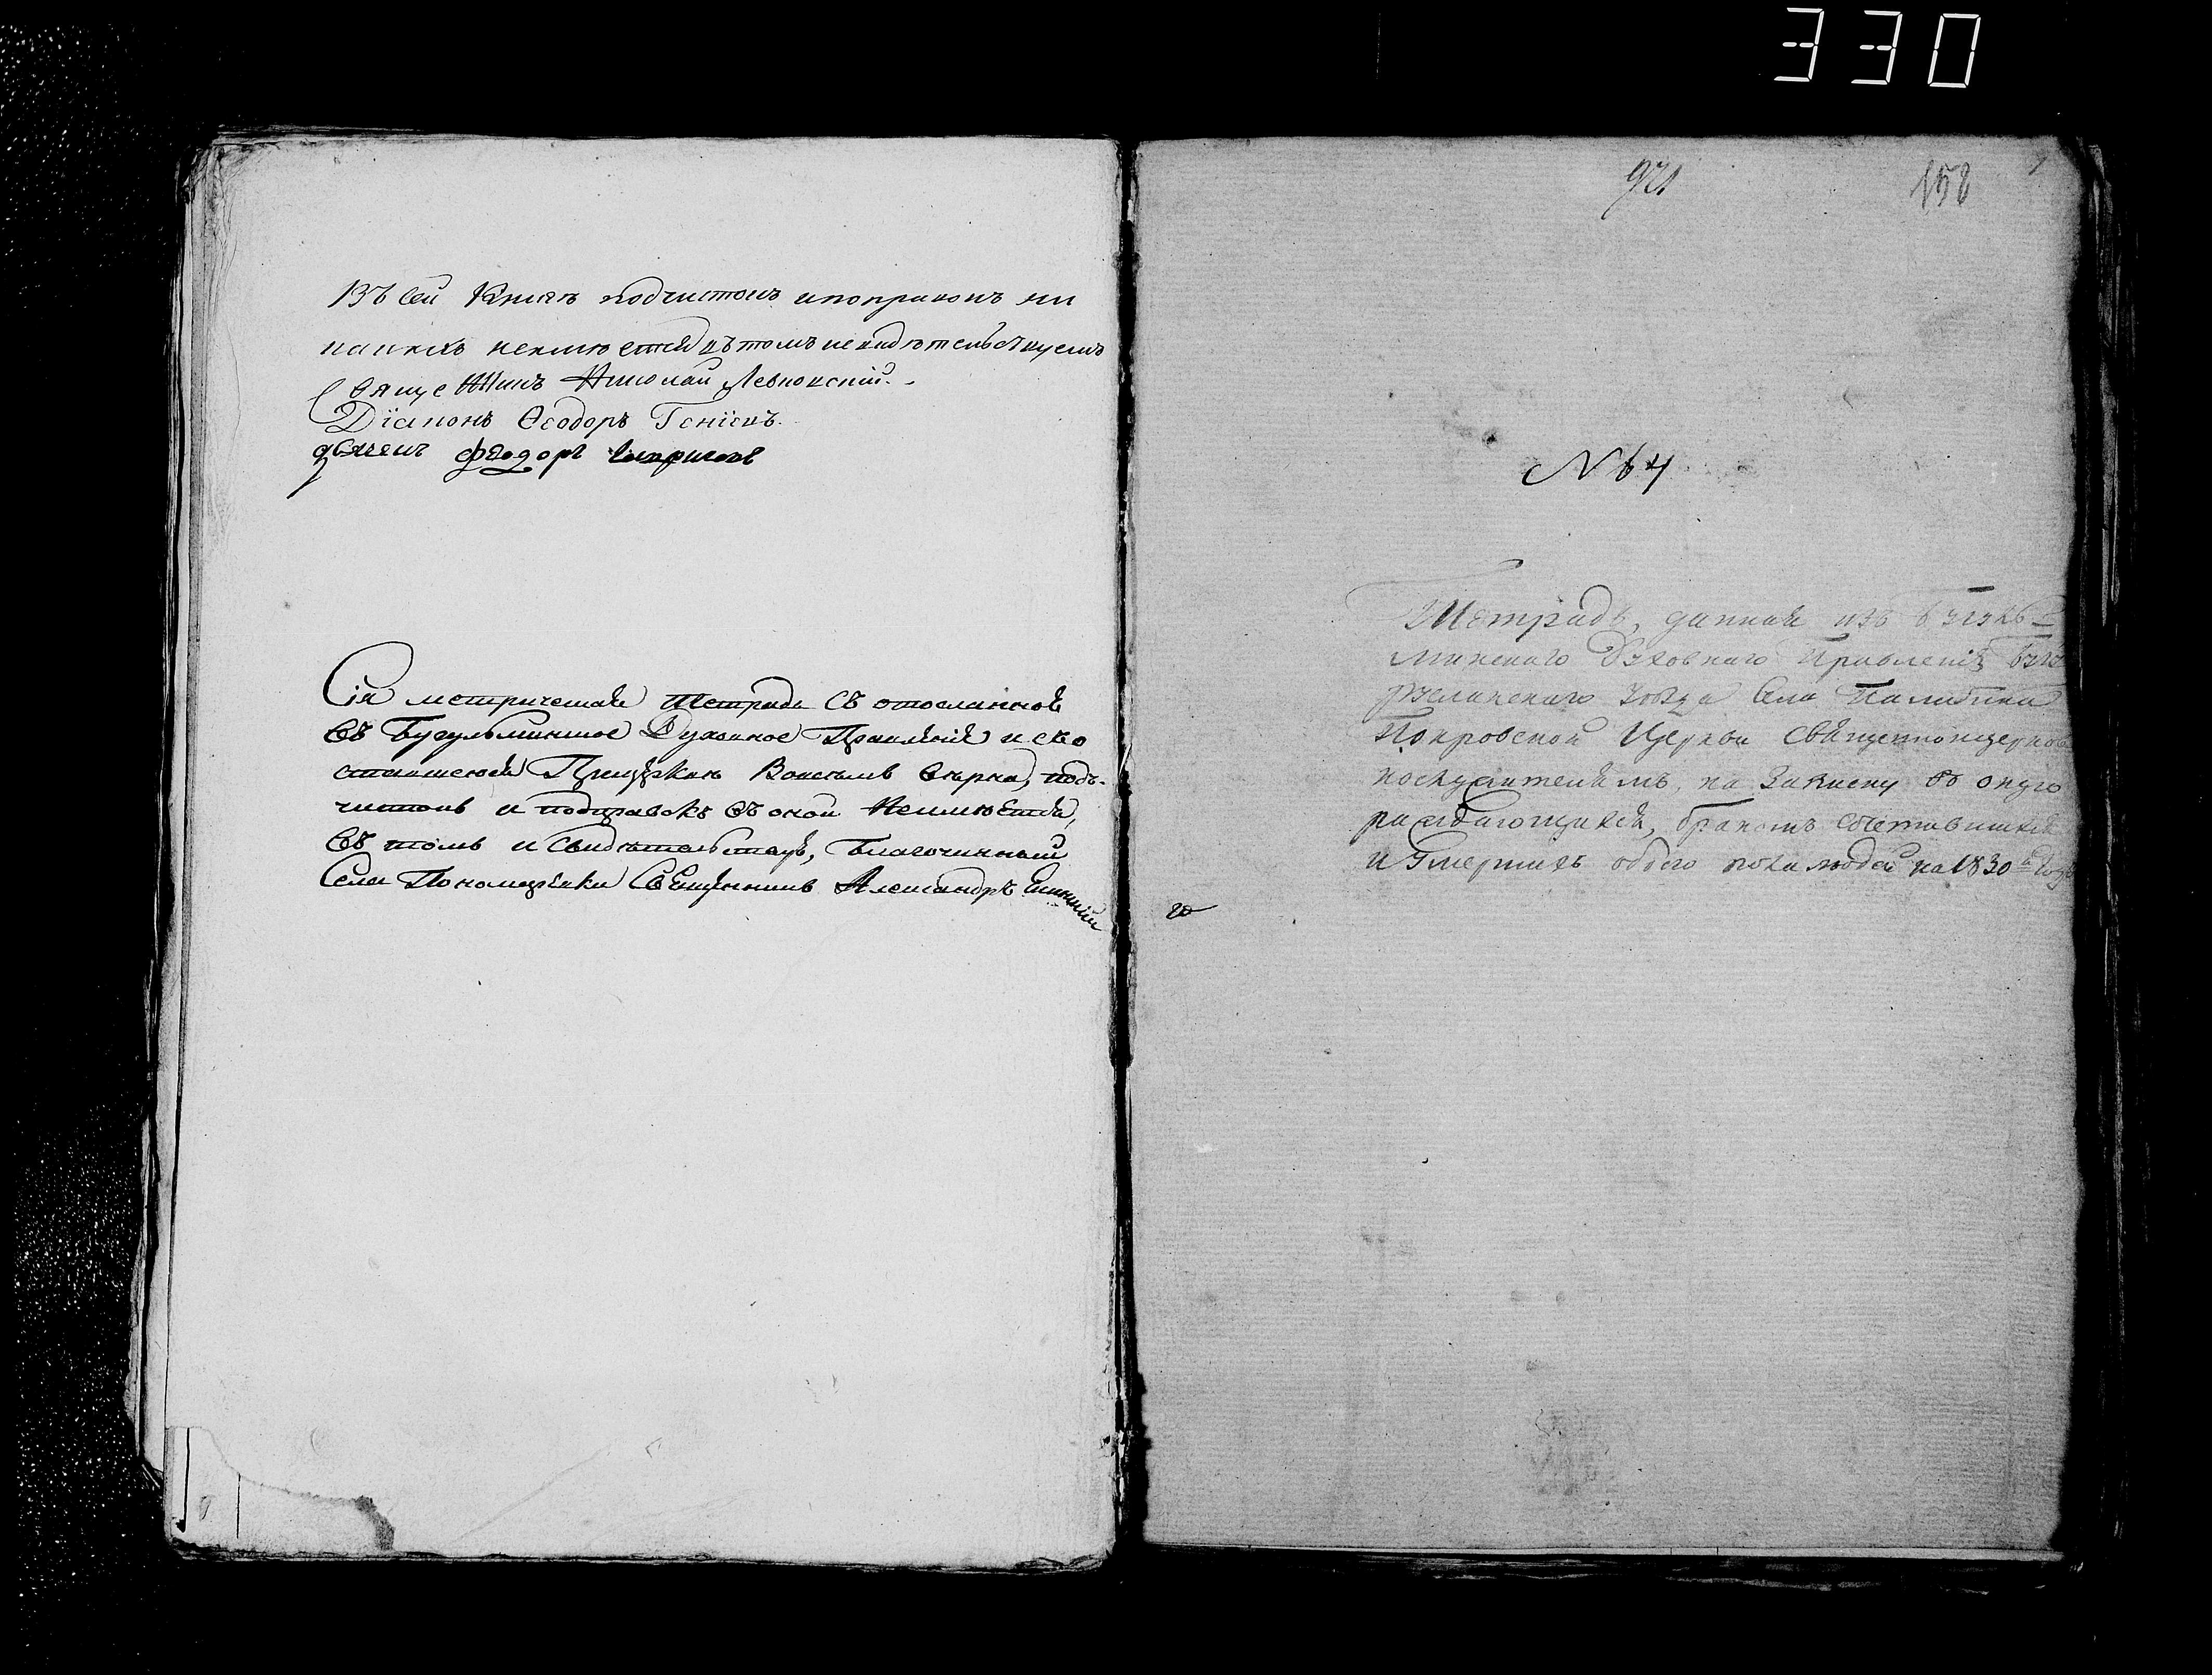 Въ сей Книгѣ подчистокъ и поправокъ ни
какихъ неимѣется въ томъ и свидѣтельствуемъ
Священникъ Николай Левковскій.
Діаконъ Ѳеодоръ
дьячекъ Феодоръ
Сія метрическая тетрадь съ отосланной
въ Бугульминское Духовное Правленіе и съ
оставшеюся При Церкви вѣрна, подъ-
чистокъ и поправокъ въ оной Неимѣется,
въ томъ и свидѣтельствую, Благочинный
Села Священникъ Александръ
330
921
158
1
№ 64
Тетрадь, данная изъ Бугуль=
минскаго Духовнаго Правленія Бугу
русланскаго Уѣзда Села
Покровской Церкви Священноцерковно
служителямъ, на Записку въ оную
раждающихся, бракомъ сочетавшихся
и Умершихъ обоего пола людей на 1830й Годъ